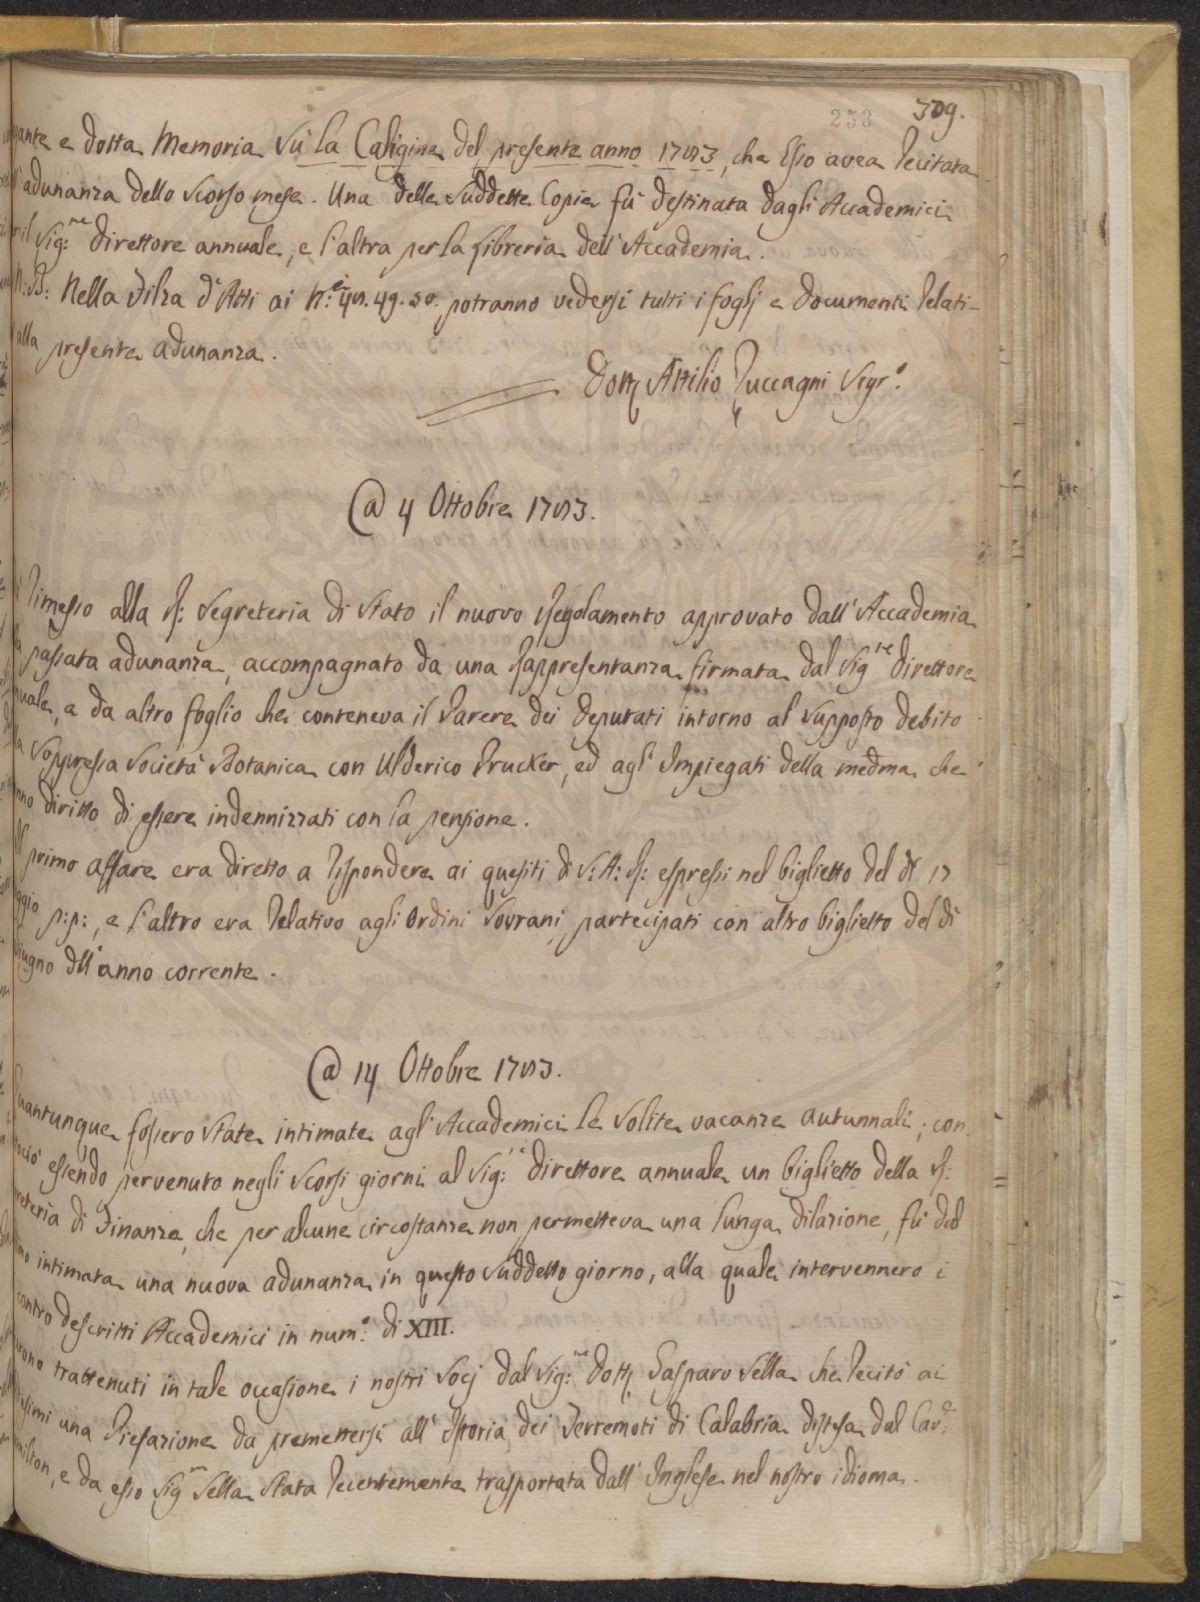 309.
253
gante e dotta Memoria sù la Caligine del presente anno 1783, che Esso avea recitata
adunanza dello scorso mese. Una delle suddette Copie fù destinata dagli Accademici
r il Sig:re Direttore annuale, e l'altra per la Libreria dell'Accademia.
N:B: Nella Filza d'Atti ai N:i 48. 49. 50. potranno vedersi tutti i foglj e documenti relati-
alla presente adunanza.
Dott Attilio Zuccagni Segr:o
@ 4 Ottobre 1783.
rimesso alla R: Segreteria di Stato il nuovo Regolamento approvato dall'Accademia
passata adunanza, accompagnato da una Rappresentanza firmata dal Sig:re Direttore
nuale, e da altro foglio che conteneva il Parere dei Deputati intorno al supposto debito
la soppressa Società Botanica con Ulderico Prucker, ed agl'Impiegati della medma che
nno diritto di essere indennizzati con la pensione.
Il primo affare era diretto a rispondere ai quesiti di S: A: R: espressi nel biglietto del dì 17
ggio p:p:, e l'altro era relativo agli Ordini Sovrani partecipati con altro biglietto del dì
Giugno dell'anno corrente.
@ 14 Ottobre 1783.
Quantunque fossero state intimate agl'Accademici le solite vacanze autunnali; con
tociò essendo pervenuto negli scorsi giorni al Sig:re Direttore annuale un biglietto della R:
greteria di Finanze, che per alcune circostanze non permetteva una lunga dilazione, fù dal
mo intimata una nuova adunanza in questo suddetto giorno, alla quale intervennero i
contro descritti Accademici in num:o di XIII.
urono trattenuti in tale occasione i nostri Socj dal Sig:re Dott Gasparo Sella che recitò ai
desimi una Prefazione da premettersi all'Istoria dei Terremoti di Calabria distesa dal Cav:r
milton, e da esso Sig:re Sella stata recentemente trasportata dall'Inglese nel nostro idioma.